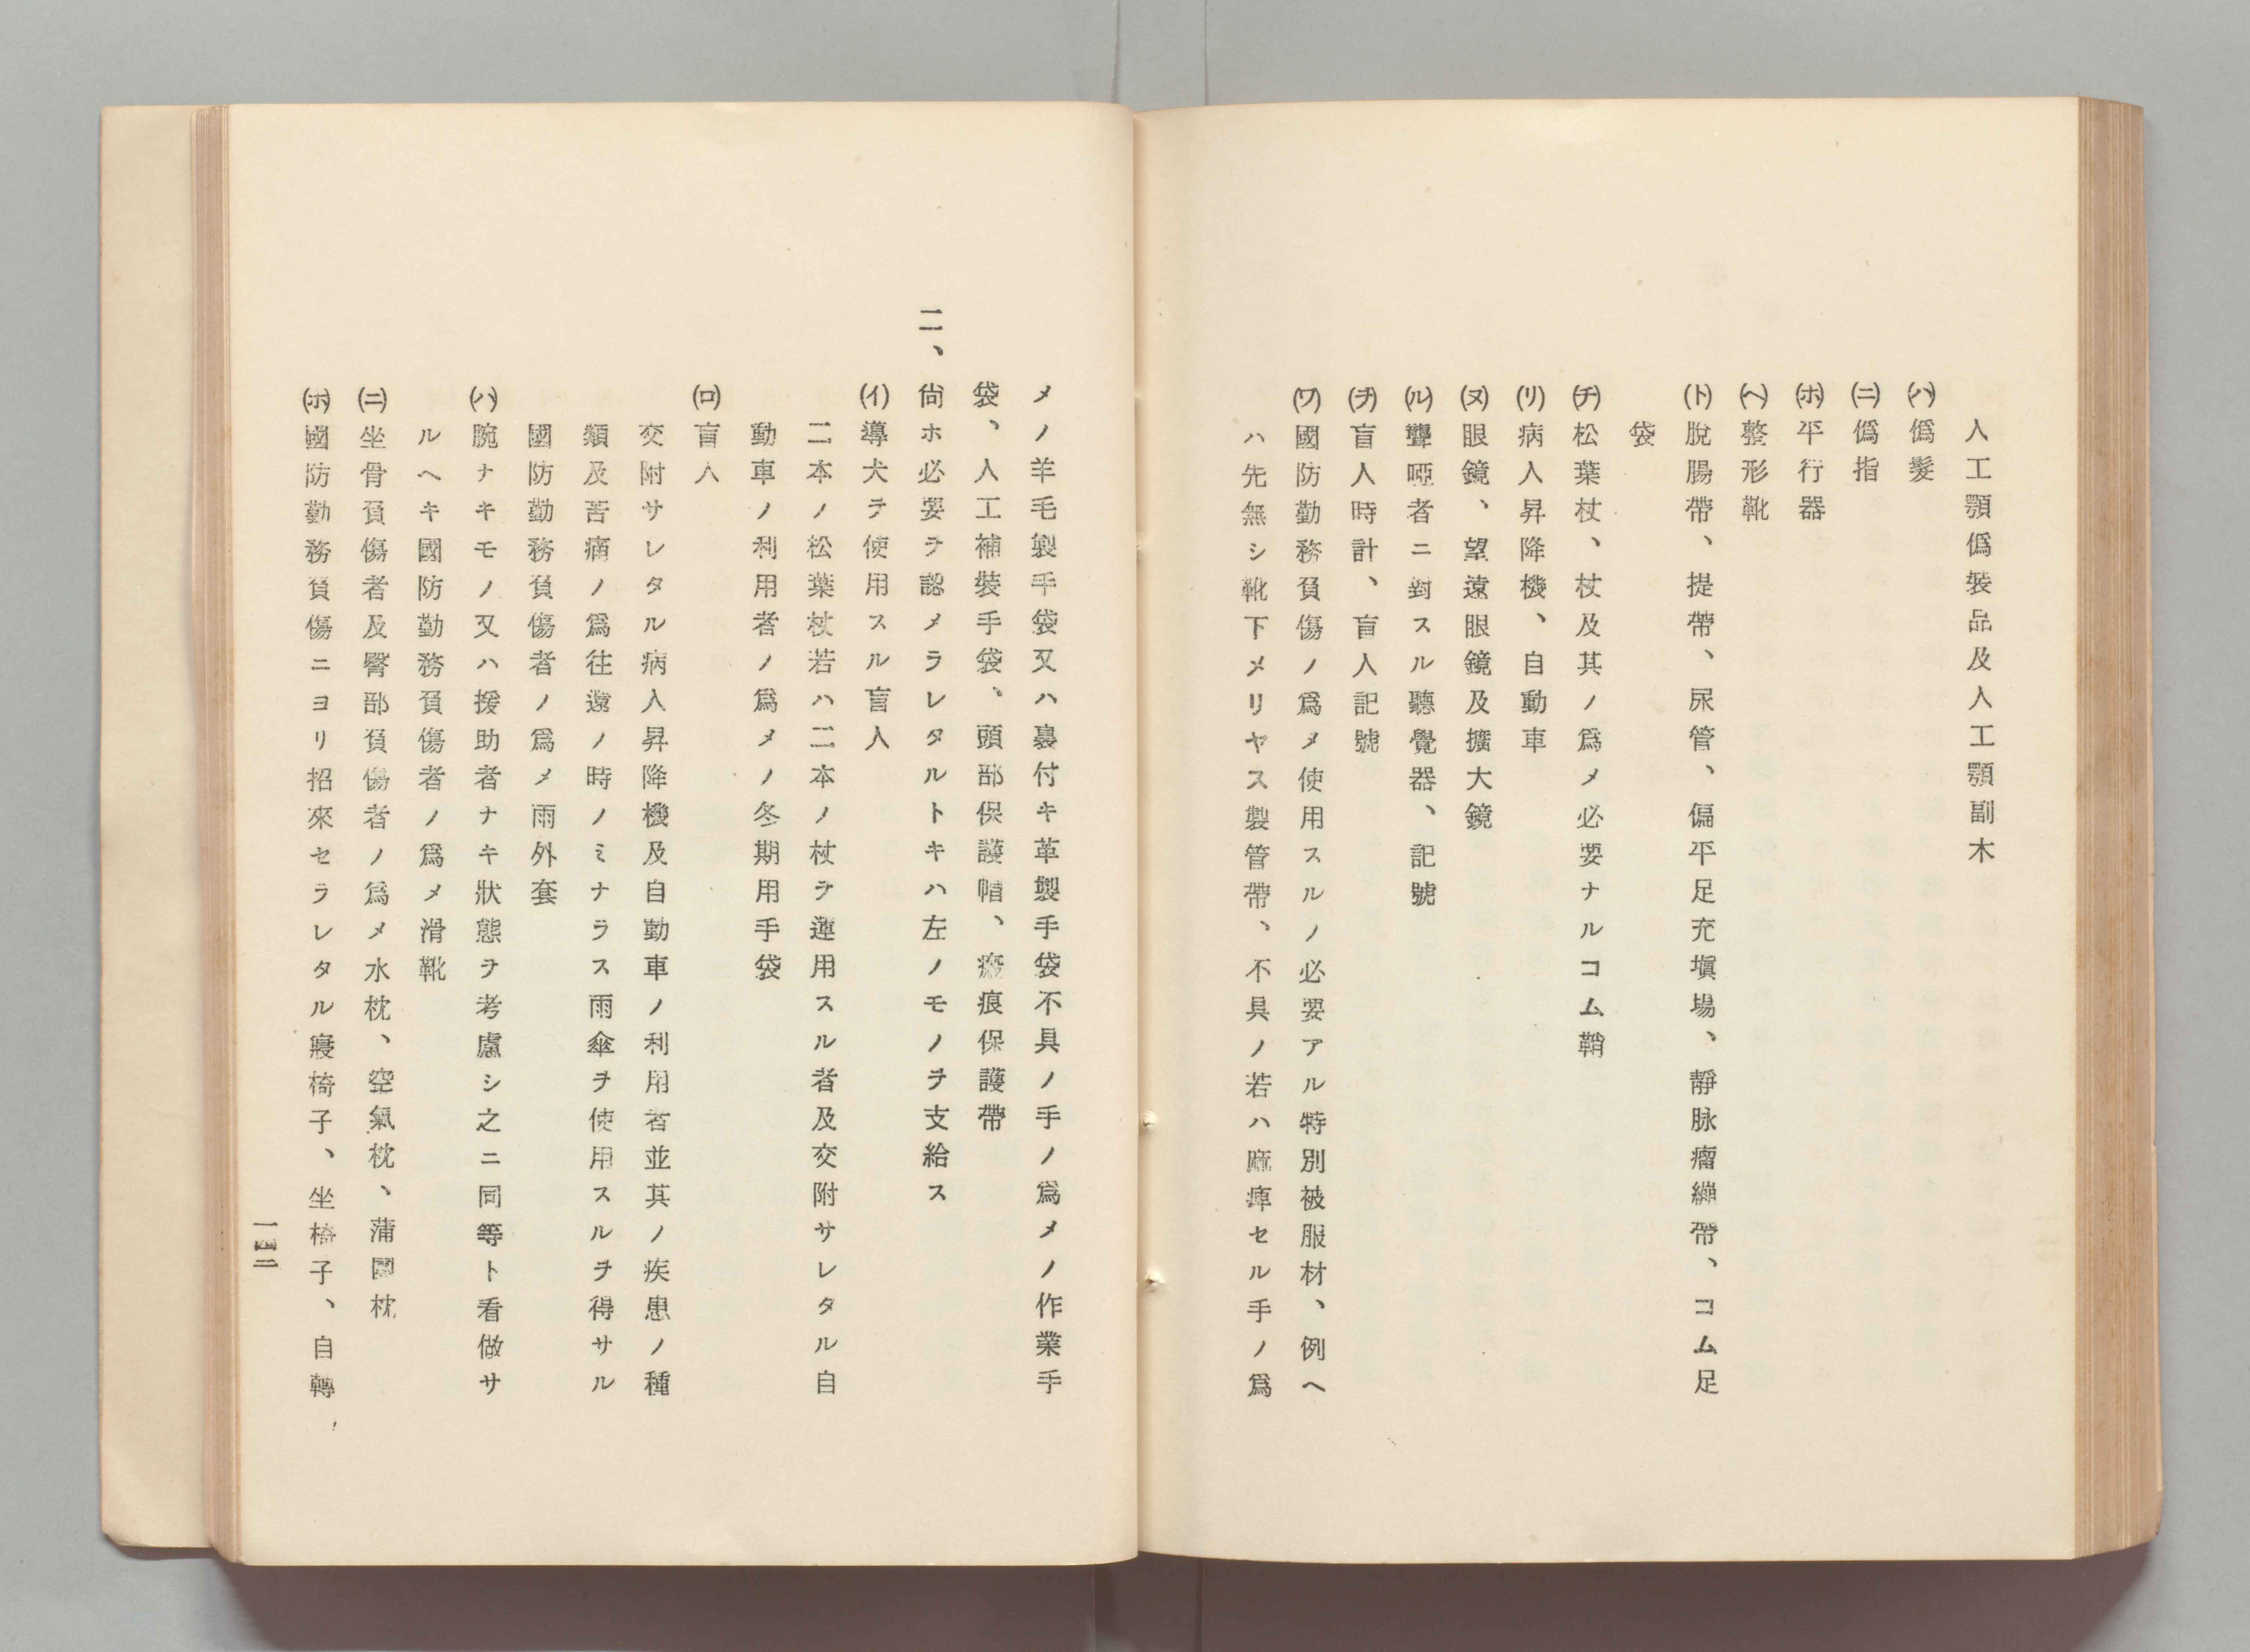 人工顎僞裝品及人工顎副木
(ハ)僞髮
(ニ)僞指
(ホ)平行器
(ヘ)整形靴
(ト)脫腸帶、提帶、尿管、偏平足充塡場、靜脉瘤繃帶、コム足
袋
(チ)松葉杖、杖及其ノ爲メ必要ナルコム鞘
(リ)病人昇降機、自動車
(ヌ)眼鏡、望遠眼鏡及擴大鏡
(ル)聾啞者ニ對スル聽覺器、記號
(ヲ)盲人時計、盲人記號
(ワ)國防勤務負傷ノ爲メ使用スルノ必要アル特別被服材、例ヘ
ハ先無シ靴下メリヤス製管帶、不具ノ若ハ麻痺セル手ノ爲
メノ羊毛製手袋又ハ裏付キ革製手袋不具ノ手ノ爲メノ作業手
袋、人工補裝手袋、頭部保護帽、瘢痕保護帶
二、尙ホ必要ヲ認メラレタルトキハ左ノモノヲ支給ス
(イ)導犬ヲ使用スル盲人
二本ノ松葉杖若ハ二本ノ杖ヲ運用スル者及交附サレタル自
動車ノ利用者ノ爲メノ冬期用手袋
(ロ)盲人
交附サレタル病人昇降機及自動車ノ利用者並其ノ疾患ノ種
類及苦痛ノ爲往遠ノ時ノミナラス雨傘ヲ使用スルヲ得サル
國防勤務負傷者ノ爲メ雨外套
(ハ)腕ナキモノ又ハ援助者ナキ狀態ヲ考慮シ之ニ同等ト看做サ
ルヘキ國防勤務負傷者ノ爲メ滑靴
(ニ)坐骨負傷者及臀部負傷者ノ爲メ水枕、空氣枕、蒲團枕
(ホ)國防勤務負傷ニヨリ招來セラレタル寢椅子、坐椅子、自轉
一四三